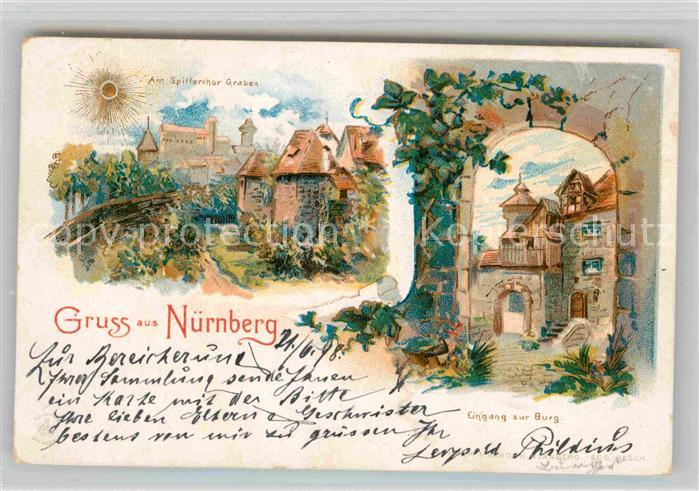 Am Spittlerthor Graben.
Gruss aus Nürnberg
21/6.98.
Zur Bereicherung
Ihrer Sammlung sende Ihnen
ein Karte mit der Bitte
Ihre lieben Eltern & Geschwister
bestens von mir zu grüssen Ihr
Leopold
Eingang zur Burg.
copy-protection Copyrightschutz
GES. GESCH.